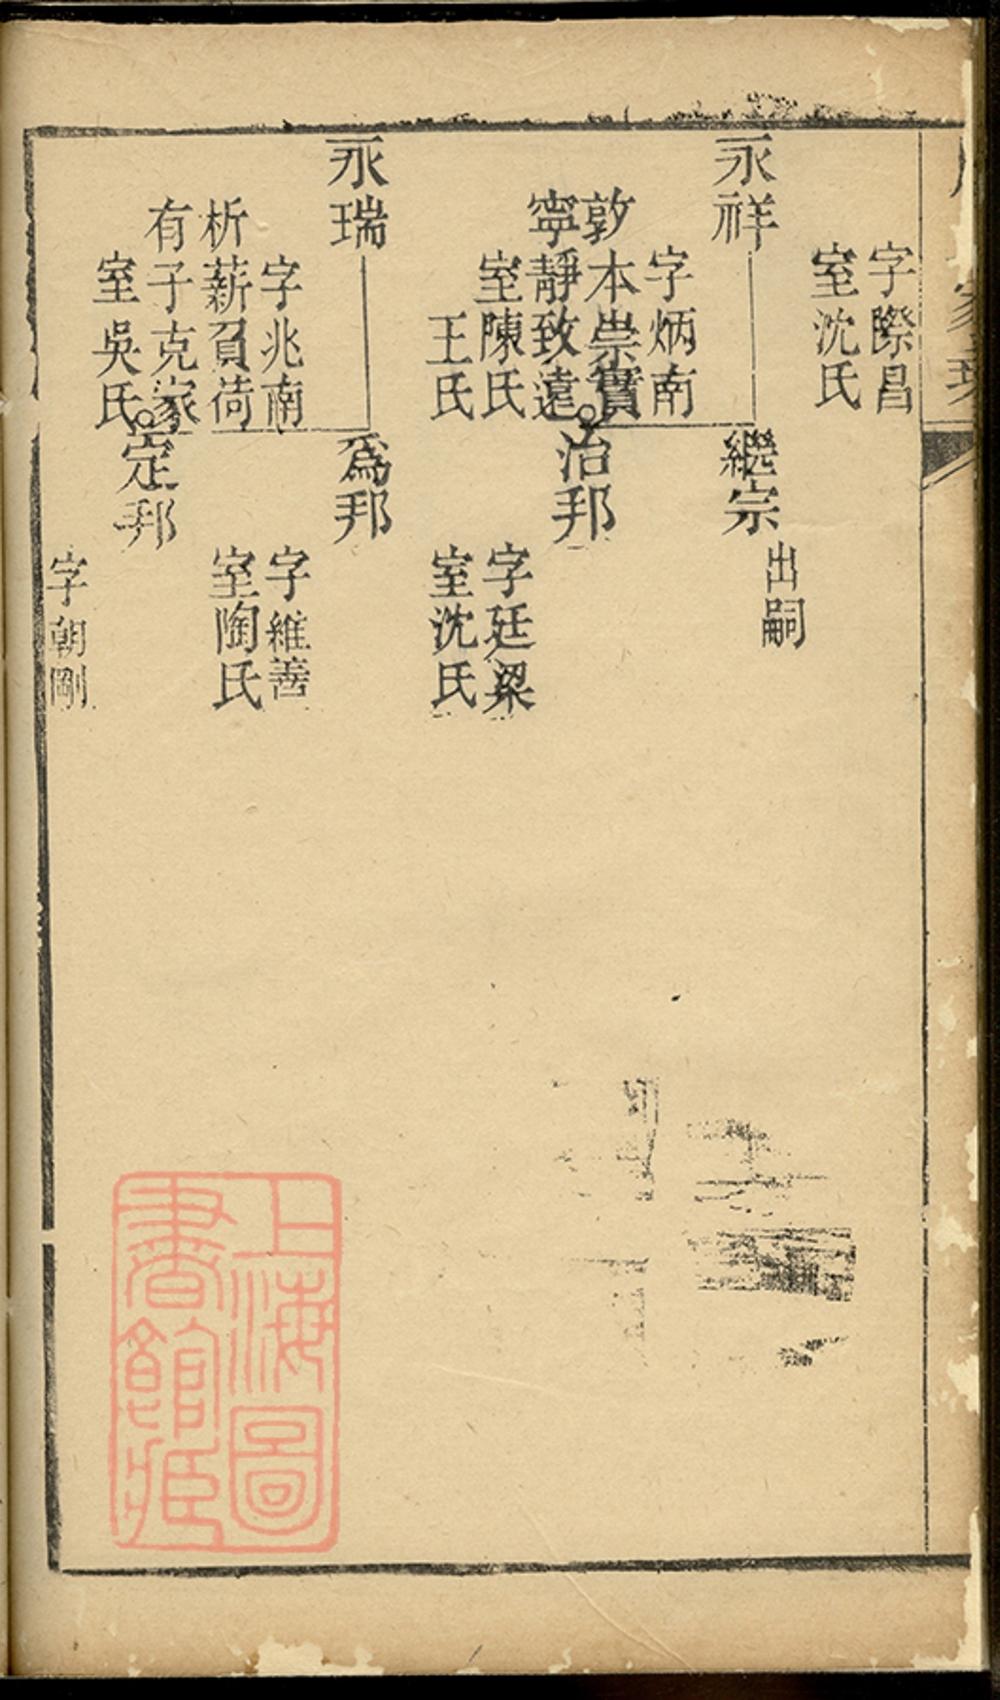 字際昌
室沈氏
永祥
繼宗
出嗣
字炳南
敦本崇實
寧靜致遠
室陳氏
王氏
治邦
字廷梁
室沈氏
永瑞
爲邦
字維善
室陶氏
字兆南
析薪負荷
有子克家
室吳氏
定邦
字朝剛
上海圖
書館藏